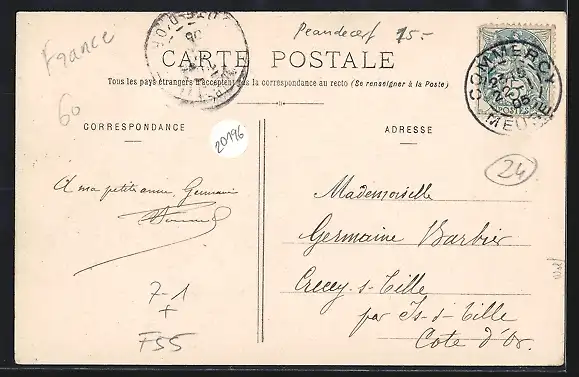 France
60
15-
CARTE POSTALE
Tous les pays étrangers n'acceptent pas la correspondance au recto (Se renseigner à la Poste)
COMMERCY
MEUSE
POSTES
CORRESPONDANCE
20196
ADRESSE
24
A ma petite amie, Germaine
Mademoiselle
Germaine Barbier
Crecey-s-Tille
par Is-s-Tille
Cote d'Or.
7-1
+
F55